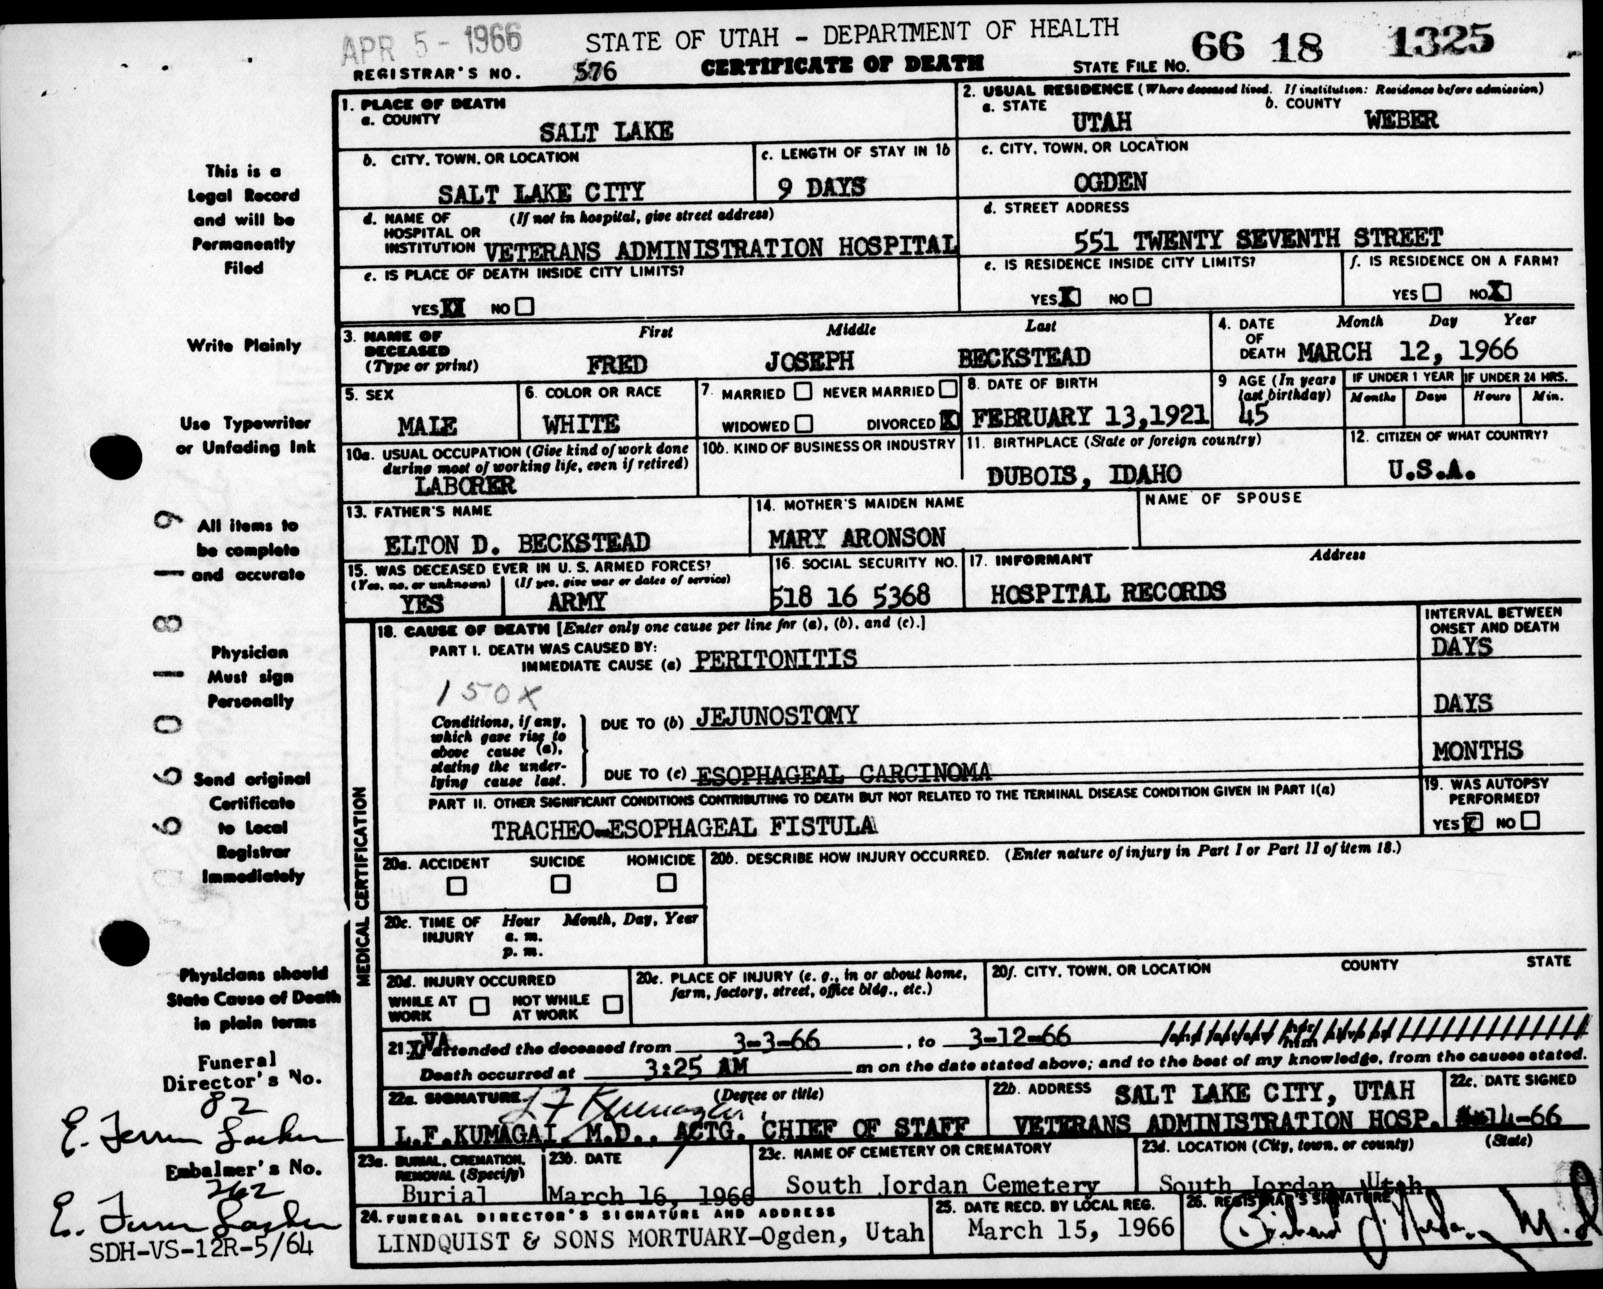 APR 5 - 1966
STATE OF UTAH - DEPARTMENT OF HEALTH
66 18 1325
REGISTRAR'S NO. 576
CERTIFICATE OF DEATH
STATE FILE NO.
1. PLACE OF DEATH
a. COUNTY
SALT LAKE
2. USUAL RESIDENCE (Where deceased lived. If institution: Residence before admission)
a. STATE
UTAH
b. COUNTY
WEBER
b. CITY, TOWN, OR LOCATION
SALT LAKE CITY
c. LENGTH OF STAY IN 1b
9 DAYS
c. CITY, TOWN, OR LOCATION
OGDEN
d. NAME OF HOSPITAL OR INSTITUTION
(If not in hospital, give street address)
VETERANS ADMINISTRATION HOSPITAL
d. STREET ADDRESS
551 TWENTY SEVENTH STREET
e. IS PLACE OF DEATH INSIDE CITY LIMITS?
YES XX NO
e. IS RESIDENCE INSIDE CITY LIMITS?
YES X NO
f. IS RESIDENCE ON A FARM?
YES NO X
3. NAME OF DECEASED
(Type or print)
First Middle Last
FRED JOSEPH BECKSTEAD
4. DATE OF DEATH
Month Day Year
MARCH 12, 1966
5. SEX
MALE
6. COLOR OR RACE
WHITE
7. MARRIED NEVER MARRIED
WIDOWED DIVORCED X
8. DATE OF BIRTH
FEBRUARY 13,1921
9 AGE (In years last birthday)
45
IF UNDER 1 YEAR
Months Days
IF UNDER 24 HRS.
Hours Min.
10a. USUAL OCCUPATION (Give kind of work done during most of working life, even if retired)
LABORER
10b. KIND OF BUSINESS OR INDUSTRY
11. BIRTHPLACE (State or foreign country)
DUBOIS, IDAHO
12. CITIZEN OF WHAT COUNTRY?
U.S.A.
13. FATHER'S NAME
ELTON D. BECKSTEAD
14. MOTHER'S MAIDEN NAME
MARY ARONSON
NAME OF SPOUSE
15. WAS DECEASED EVER IN U. S. ARMED FORCES?
(Yes, no, or unknown) (If yes, give war or dates of service)
YES ARMY
16. SOCIAL SECURITY NO.
518 16 5368
17. INFORMANT Address
HOSPITAL RECORDS
MEDICAL CERTIFICATION
18. CAUSE OF DEATH [Enter only one cause per line for (a), (b), and (c).]
INTERVAL BETWEEN ONSET AND DEATH
PART I. DEATH WAS CAUSED BY:
IMMEDIATE CAUSE (a) PERITONITIS
DAYS
150X
Conditions, if any, which gave rise to above cause (a), stating the underlying cause last.
DUE TO (b) JEJUNOSTOMY
DAYS
DUE TO (c) ESOPHAGEAL CARCINOMA
MONTHS
PART II. OTHER SIGNIFICANT CONDITIONS CONTRIBUTING TO DEATH BUT NOT RELATED TO THE TERMINAL DISEASE CONDITION GIVEN IN PART I(a)
TRACHEO-ESOPHAGEAL FISTULA
19. WAS AUTOPSY PERFORMED?
YES X NO
20a. ACCIDENT SUICIDE HOMICIDE
20b. DESCRIBE HOW INJURY OCCURRED. (Enter nature of injury in Part I or Part II of item 18.)
20c. TIME OF INJURY
Hour Month, Day, Year
a. m.
p. m.
20d. INJURY OCCURRED
WHILE AT WORK NOT WHILE AT WORK
20e. PLACE OF INJURY (e. g., in or about home, farm, factory, street, office bldg., etc.)
20f. CITY, TOWN, OR LOCATION COUNTY STATE
21. VA attended the deceased from 3-3-66, to 3-12-66
Death occurred at 3:25 AM m on the date stated above; and to the best of my knowledge, from the causes stated.
22a. SIGNATURE (Degree or title)
L F Kumagai
L.F.KUMAGAI, M.D., ACTG. CHIEF OF STAFF
22b. ADDRESS
SALT LAKE CITY, UTAH
VETERANS ADMINISTRATION HOSP.
22c. DATE SIGNED
14-66
23a. BURIAL, CREMATION, REMOVAL (Specify)
Burial
23b. DATE
March 16, 1966
23c. NAME OF CEMETERY OR CREMATORY
South Jordan Cemetery
23d. LOCATION (City, town, or county) (State)
South Jordan, Utah
24. FUNERAL DIRECTOR'S SIGNATURE AND ADDRESS
LINDQUIST & SONS MORTUARY-Ogden, Utah
25. DATE RECD. BY LOCAL REG.
March 15, 1966
26. REGISTRAR'S SIGNATURE
M.D.
This is a
Legal Record
and will be
Permanently
Filed
Write Plainly
Use Typewriter
or Unfading Ink
All items to
be complete
and accurate
Physician
Must sign
Personally
Send original
Certificate
to Local
Registrar
Immediately
Physicians should
State Cause of Death
in plain terms
Funeral
Director's No.
82
Embalmer's No.
262
SDH-VS-12R-5/64
6 6 0 1 8 1 9